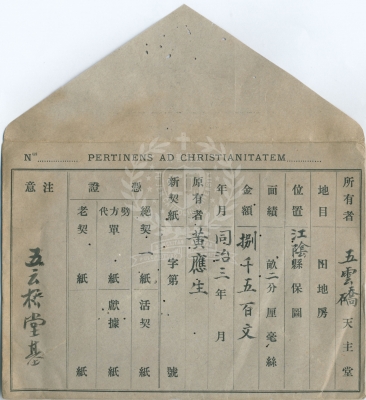 Nᵘˢ............ PERTINENS AD CHRISTIANITATEM............
所有者 五雲橋天主堂
地目 田地房
位置 江陰縣 保 圖
面積 畝二分 厘 毫 絲
金額 捌千五百文
年月 同治三年 月
原有者 黃應生
新契紙 字第 號
憑證
絕契一紙 活契 紙
代方單 紙 獻據 紙
老契 紙 紙
注意
五云橋堂基